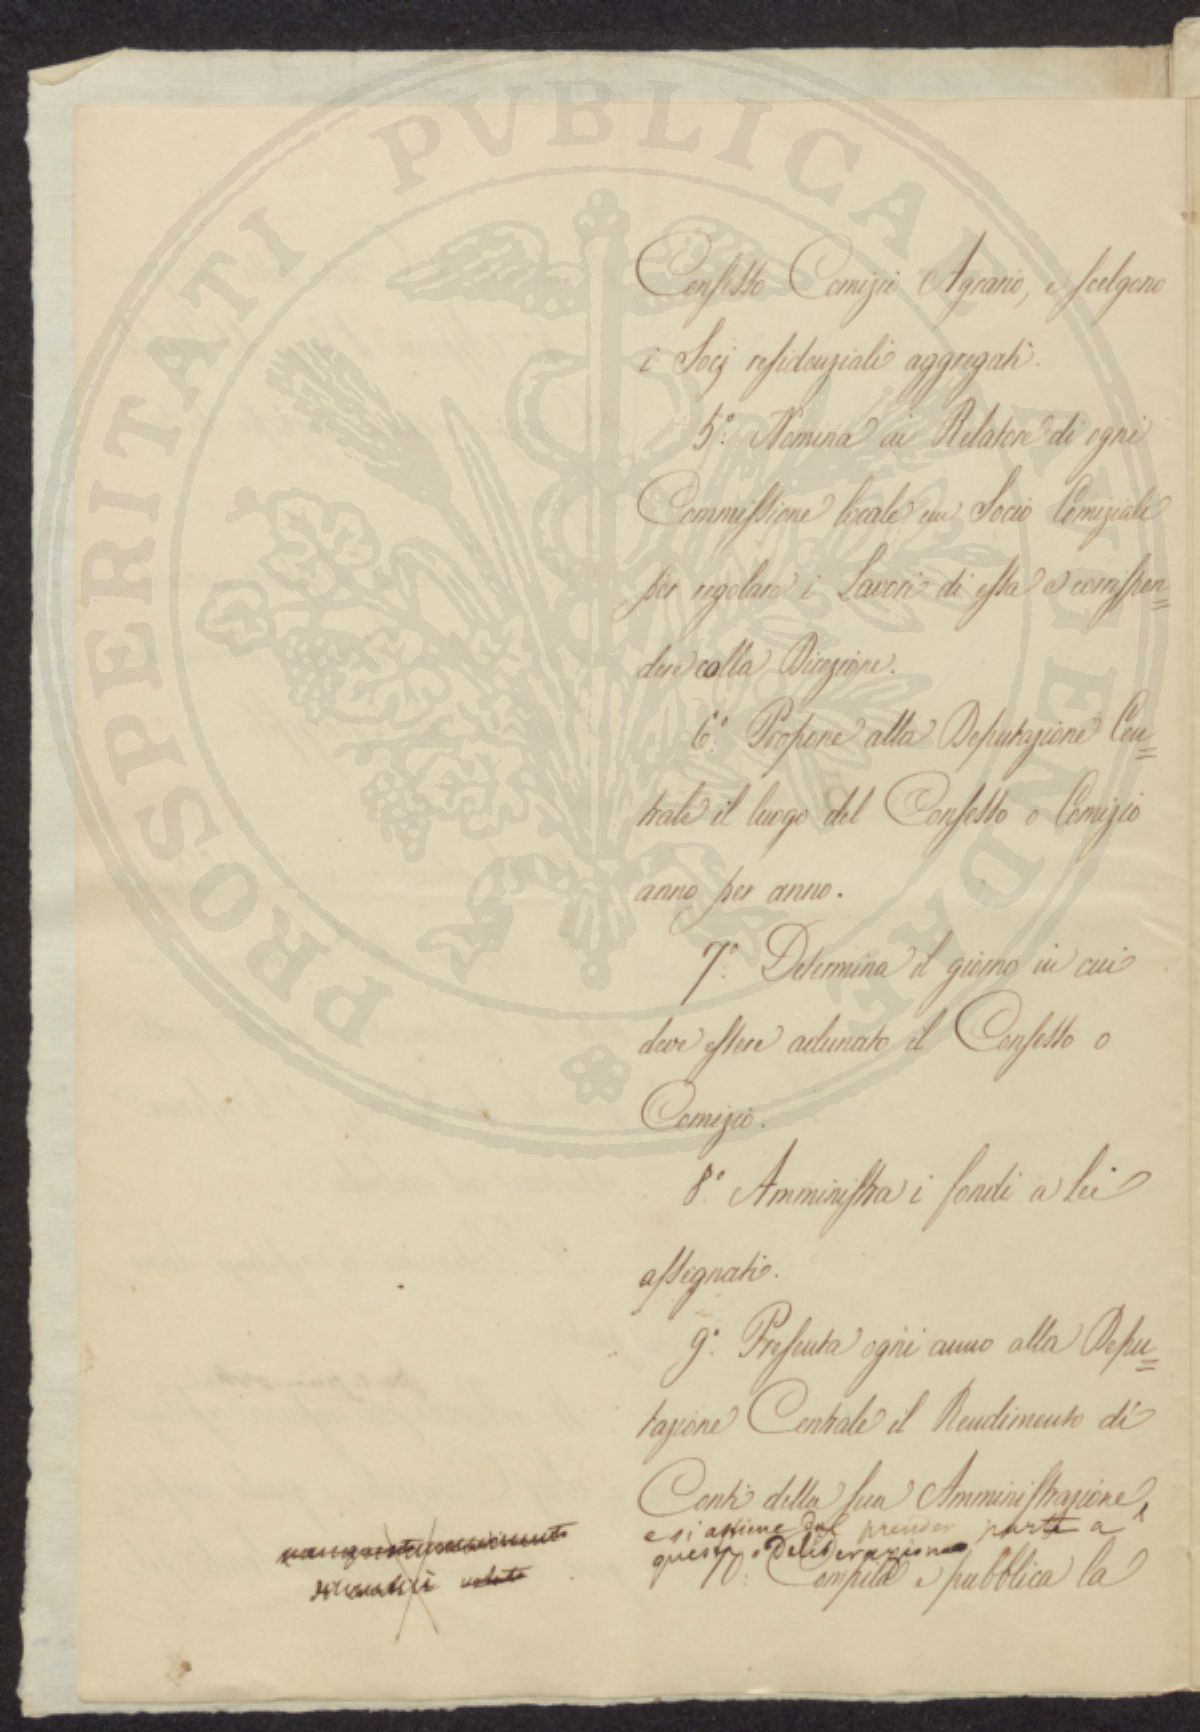 PROSPERITATI PVBLICAE AVGENDAE
Consesso Comizio Agrario, e scelgono
i Socj residenziali aggregati.
5º. Nomina ai Relatore di ogni
Commissione locale un Socio Comiziale
per regolare i Lavori di essa e corrispon=
dere colla Direzione.
6º. Propone alla Deputazione Cen=
trale il luogo del Consesso o Comizio
anno per anno.
7º. Determina il giorno in cui
deve essere adunato il Consesso o
Comizio.
8º. Amministra i fondi a lei
assegnati.
9º. Presenta ogni anno alla Depu=
tazione Centrale il Rendimento di
Conti della sua Amministrazione,
e si astiene dal prender parte a
questa Deliberazione
10º. Compila e pubblica la